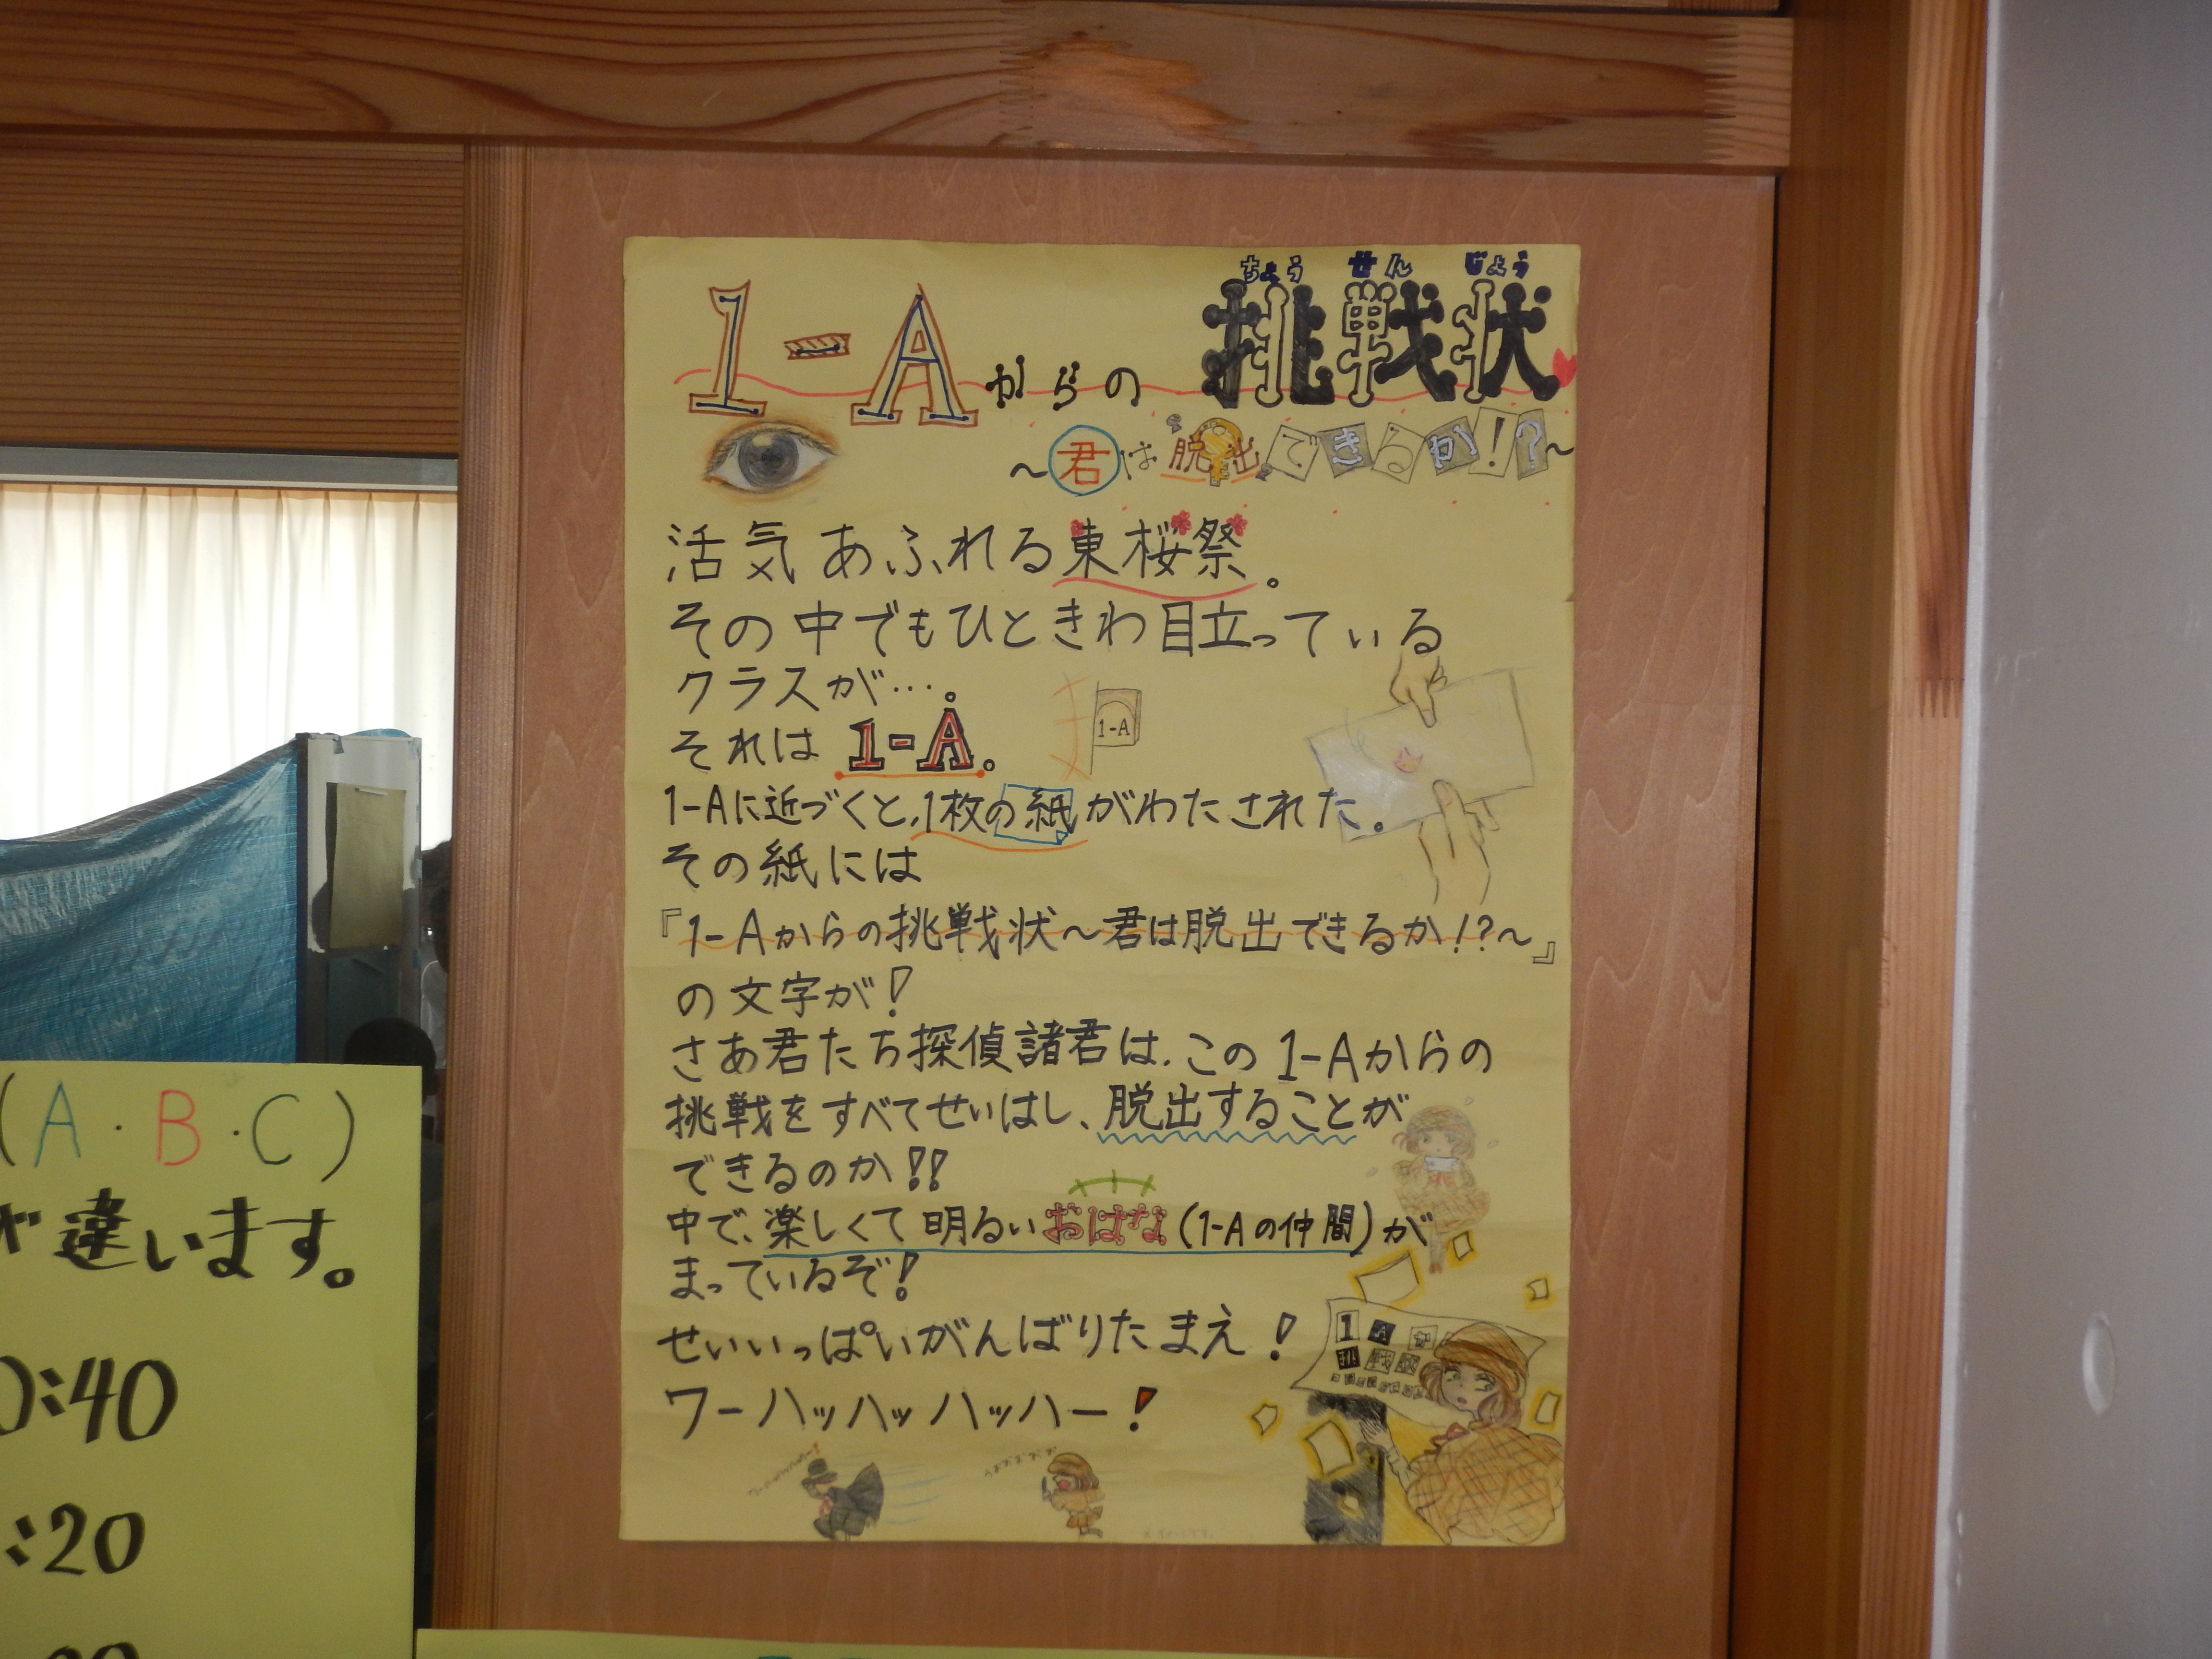 ちょう せん じょう
1-Aからの 挑戦状
～君は脱出できるか!?～
活気あふれる東桜祭。
その中でもひときわ目立っている
クラスが…。
それは 1-A。
1-A
1-Aに近づくと、1枚の紙がわたされた。
その紙には
『1-Aからの挑戦状～君は脱出できるか!?～』
の文字が!
さあ君たち探偵諸君は、この1-Aからの
挑戦をすべてせいはし、脱出することが
できるのか!!
中で、楽しくて明るいおはな(1-Aの仲間)が
まっているぞ!
せいいっぱいがんばりたまえ!
ワーハッハッハッハー!
(A・B・C)
が違います。
:40
:20